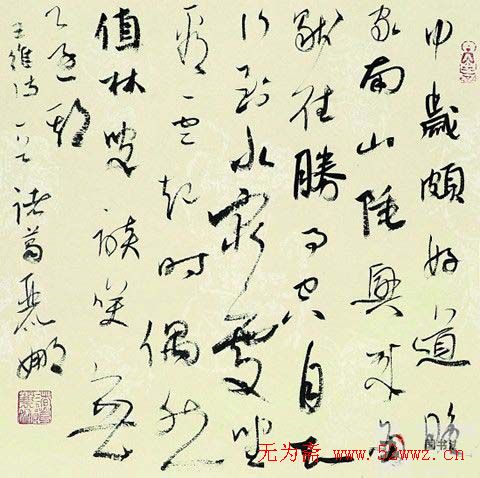 中歲頗好道晚
家南山陲興來每
獨往勝事空自知
行到水窮處坐
看雲起時偶然
值林叟談笑無
還期
王維詩一首 諸葛麗娜
无为斋 www.52wwz.cn